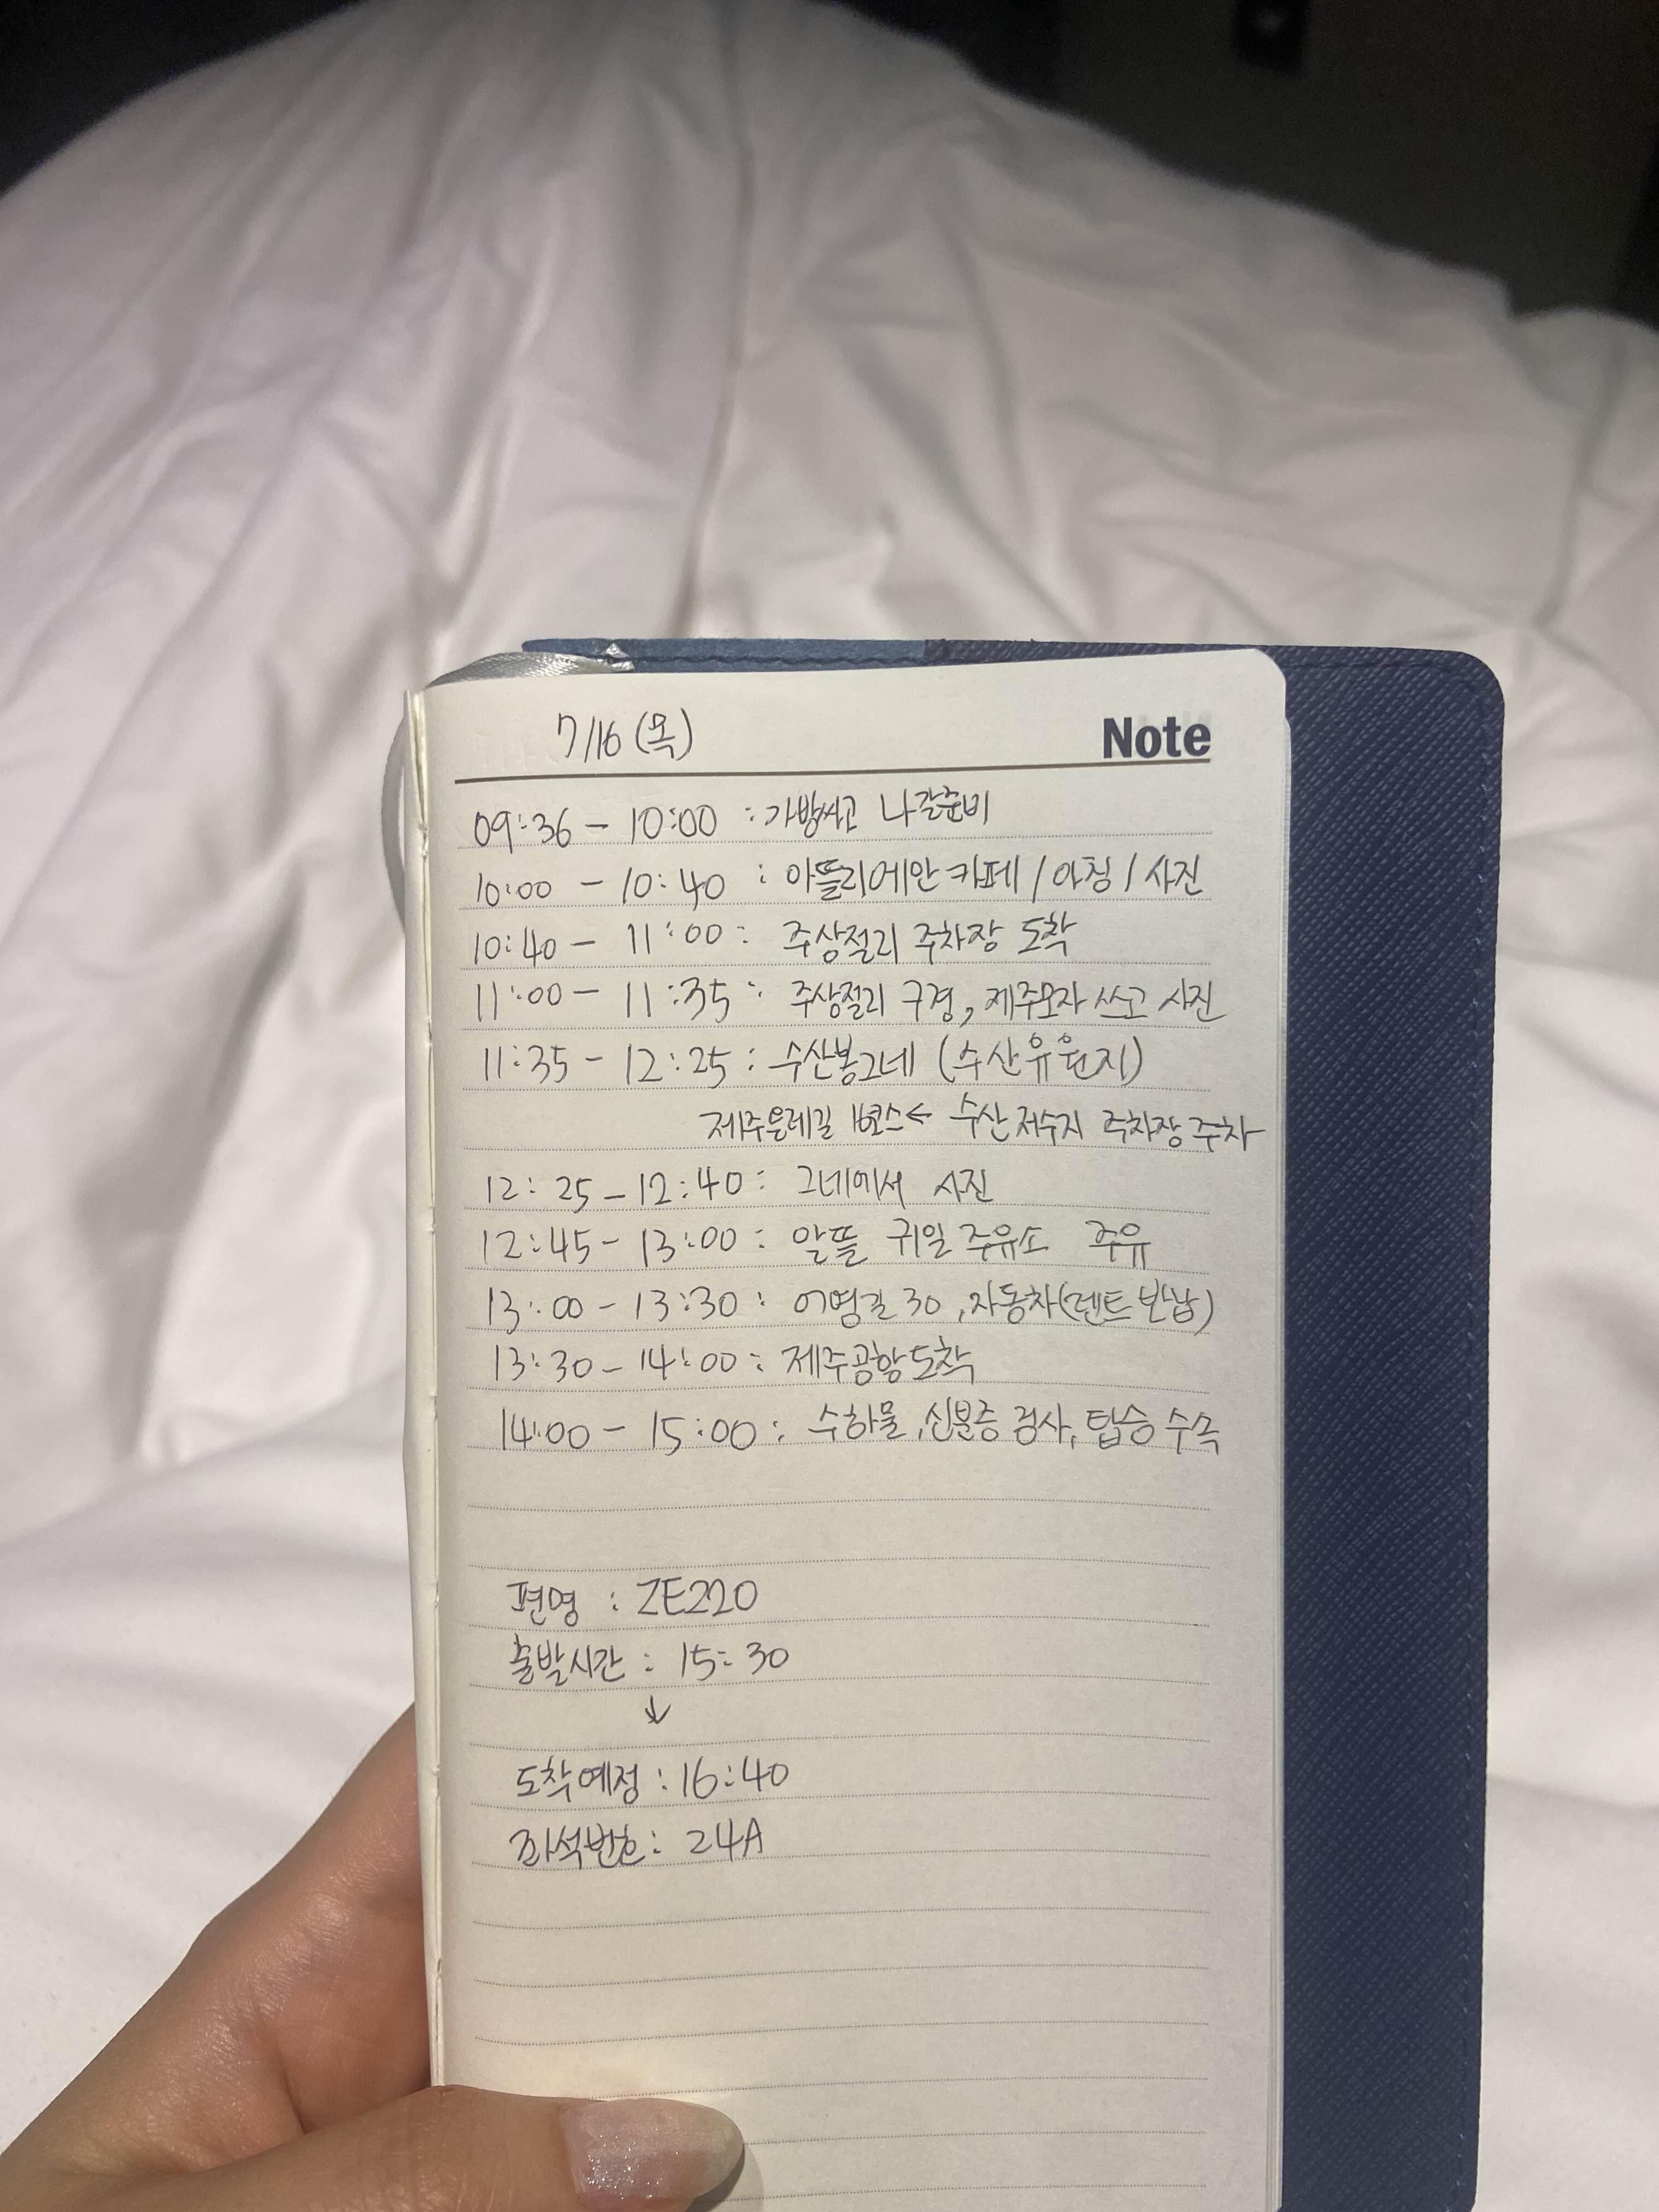 7/16 (목)
Note
09:36 - 10:00 : 가방싸고 나갈준비
10:00 - 10:40 : 아뜰리에안 카페 / 아침 / 사진
10:40 - 11:00 : 주상절리 주차장 도착
11:00 - 11:35 : 주상절리 구경, 제주모자 쓰고 사진
11:35 - 12:25 : 수산봉그네 (수산유원지)
제주올레길 코스 ← 수산저수지 주차장 주차
12:25 - 12:40 : 그네에서 사진
12:45 - 13:00 : 알뜰 귀일 주유소 주유
13:00 - 13:30 : 어영길 30, 자동차(렌트 반납)
13:30 - 14:00 : 제주공항도착
14:00 - 15:00 : 수하물, 신분증 검사, 탑승 수속
편명 : ZE220
출발시간 : 15:30
↓
도착예정 : 16:40
좌석번호 : 24A